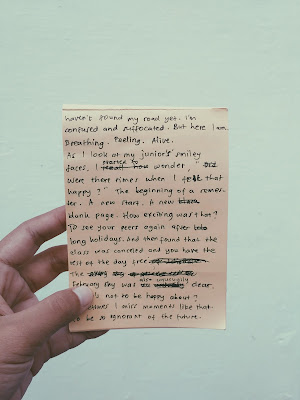 haven't found my road yet. I'm
confused and suffocated. But here I am.
Breathing. Feeling. Alive.
As I look at my junior's smiley
faces, I started to wonder, "
were there times when I felt that
happy?" The beginning of a semes-
ter. A new start. A new
dank page. How exciting was that?
To see your peers again after
long holidays. And then found that the
class was canceled and you have the
rest of the day free
The
February sky was also unusually clear.
's not to be happy about?
times I miss moments like that.
be so ignorant of the future.